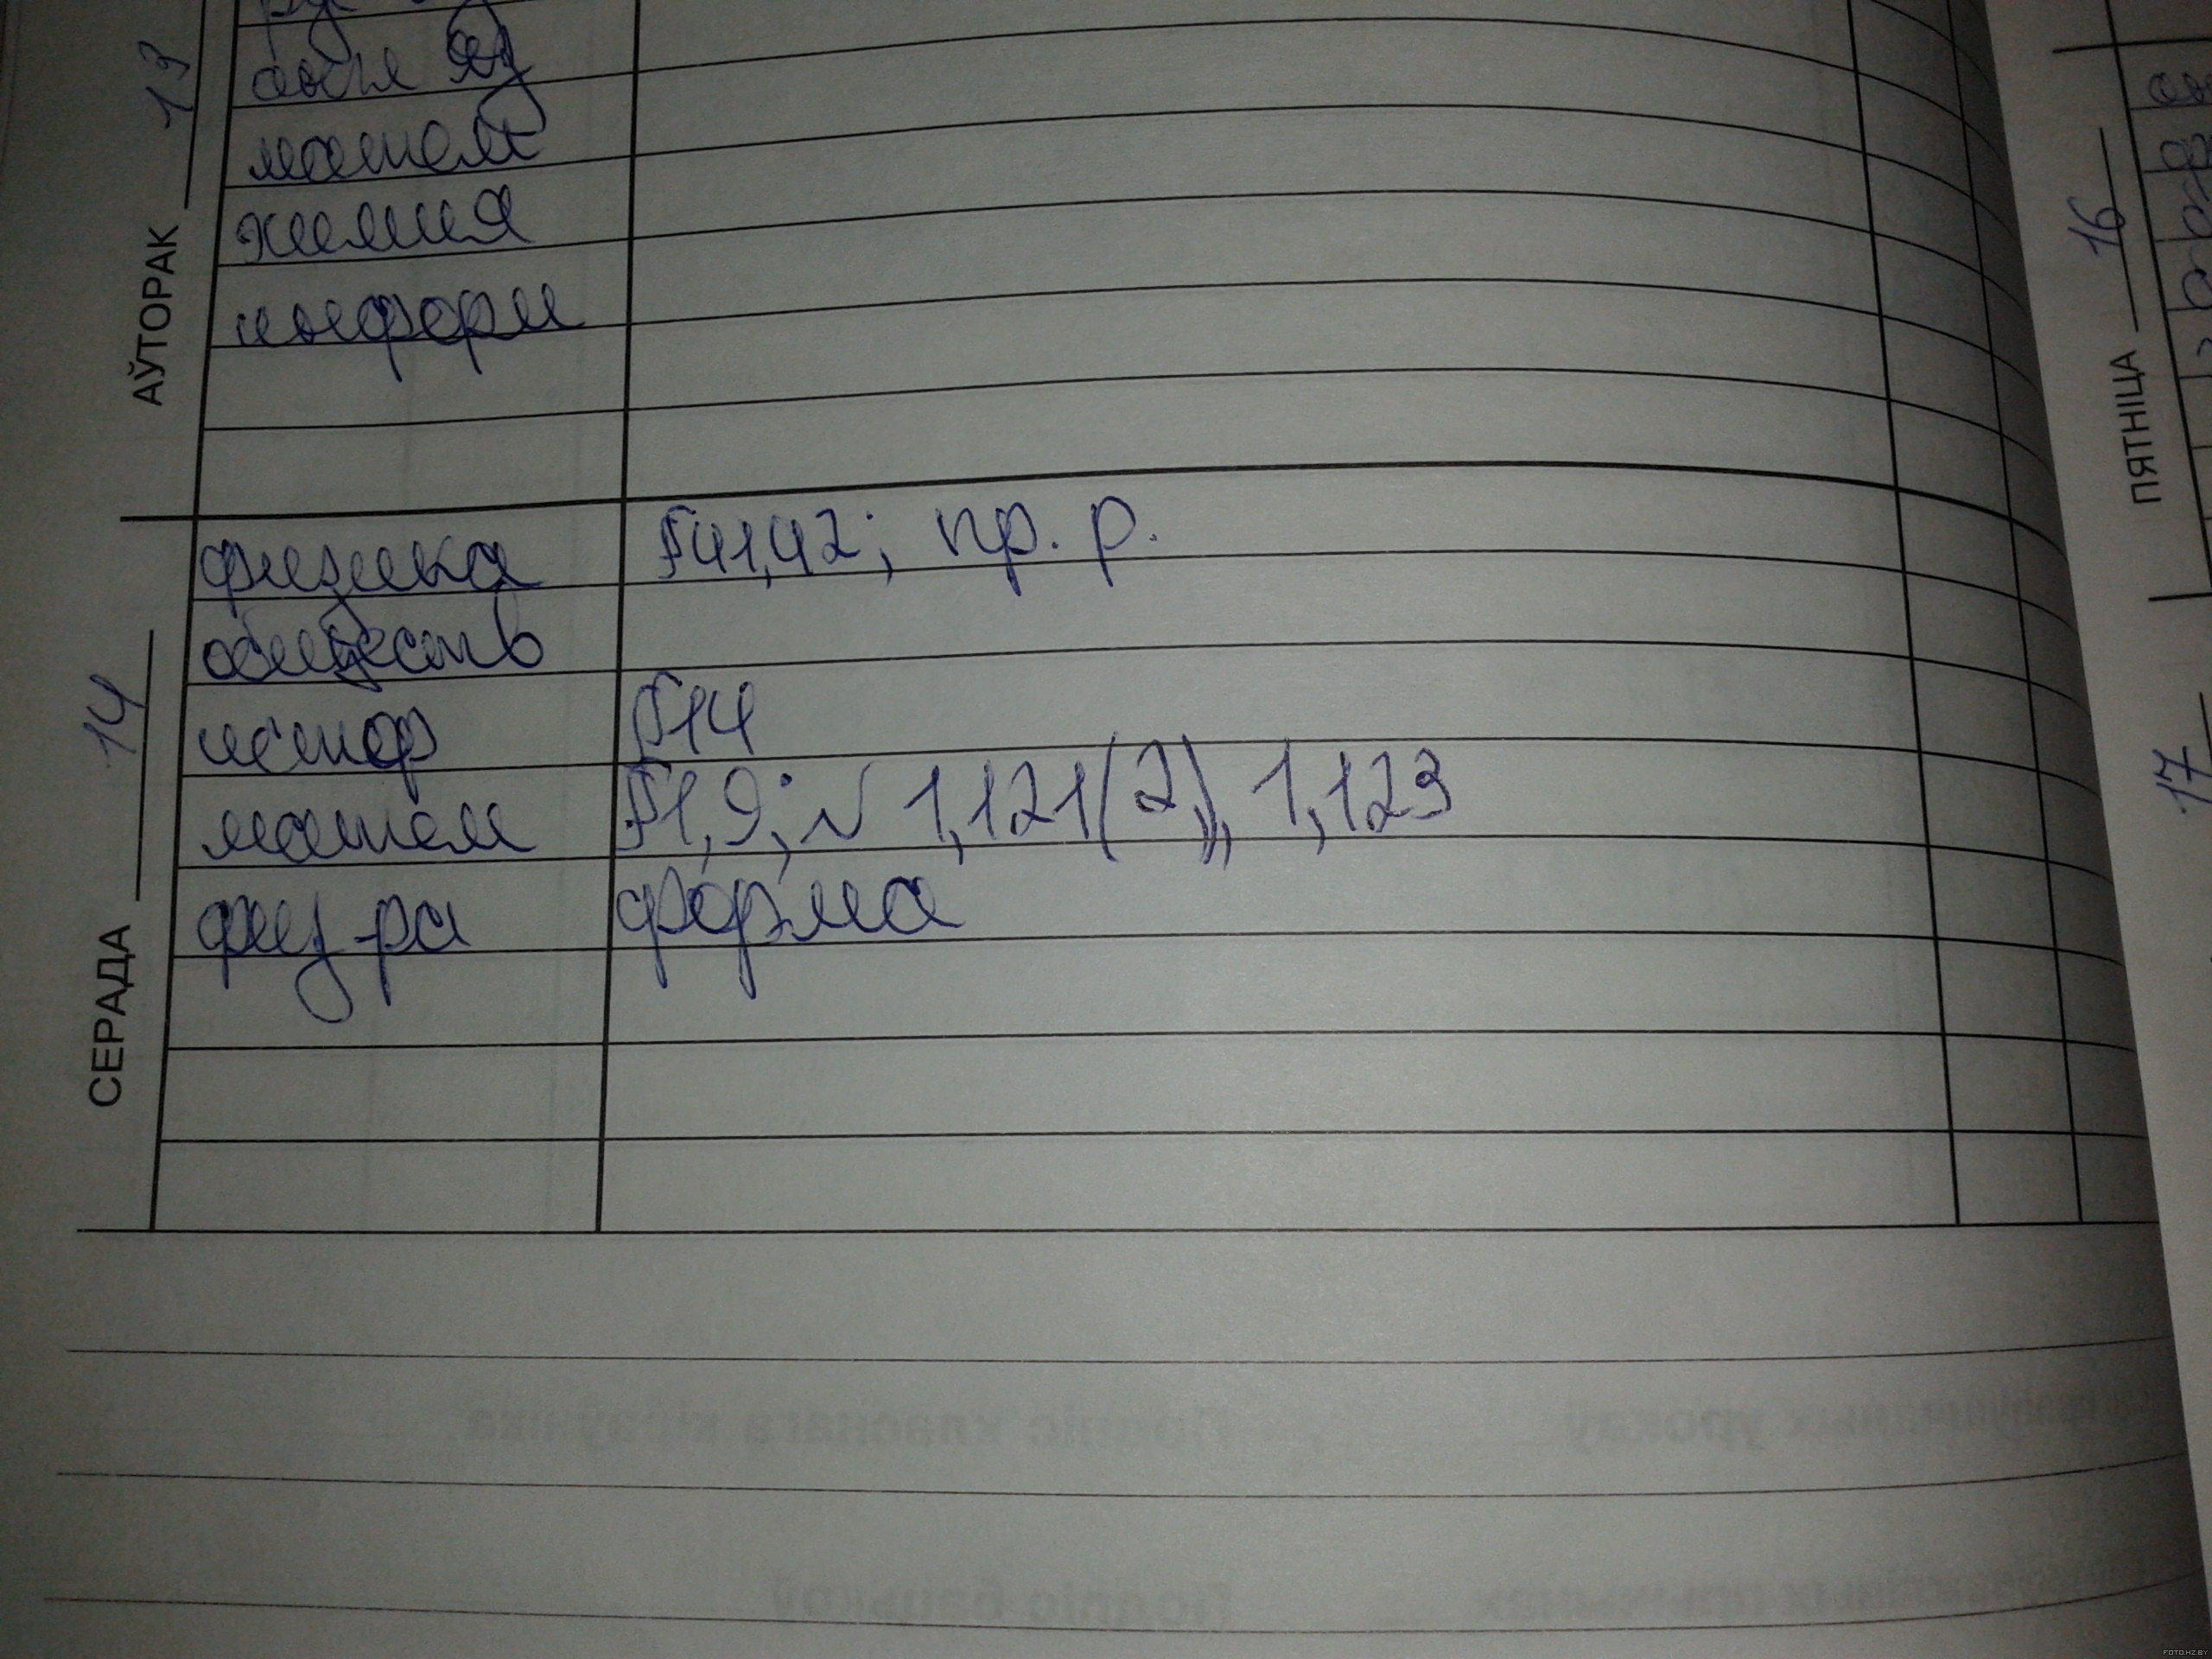 АЎТОРАК 13
матем
химия
информ
СЕРАДА 14
физика §41,42; пр. р.
обществ
истор §14
матем §1,9; № 1,121(2), 1,123
физ-ра форма
ПЯТНІЦА 16
17
Подпіс класнага кіраўніка
Подпіс бацькоў
FOTO.HZ.BY